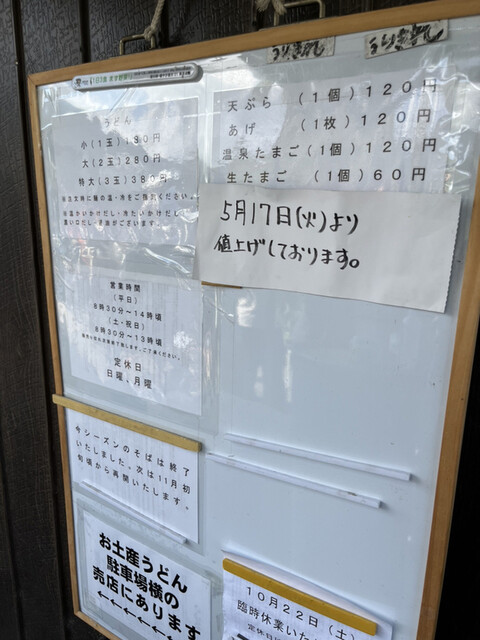 うどん
小(1玉)180円
大(2玉)280円
特大(3玉)380円
※注文時に麺の温・冷をご指定ください。
※温かいかけだし・冷たいかけだし
営業時間
(平日)
8時30分～14時頃
(土・祝日)
8時30分～13時頃
定休日
日曜、月曜
今シーズンのそばは終了
いたしました。次は11月初
旬頃から再開いたします。
お土産うどん
駐車場横の
売店にあります
←←←←←←←
天ぷら (1個)120円
あげ (1枚)120円
温泉たまご(1個)120円
生たまご (1個)60円
5月17日(火)より
値上げしております。
10月22日(土)
臨時休業いた